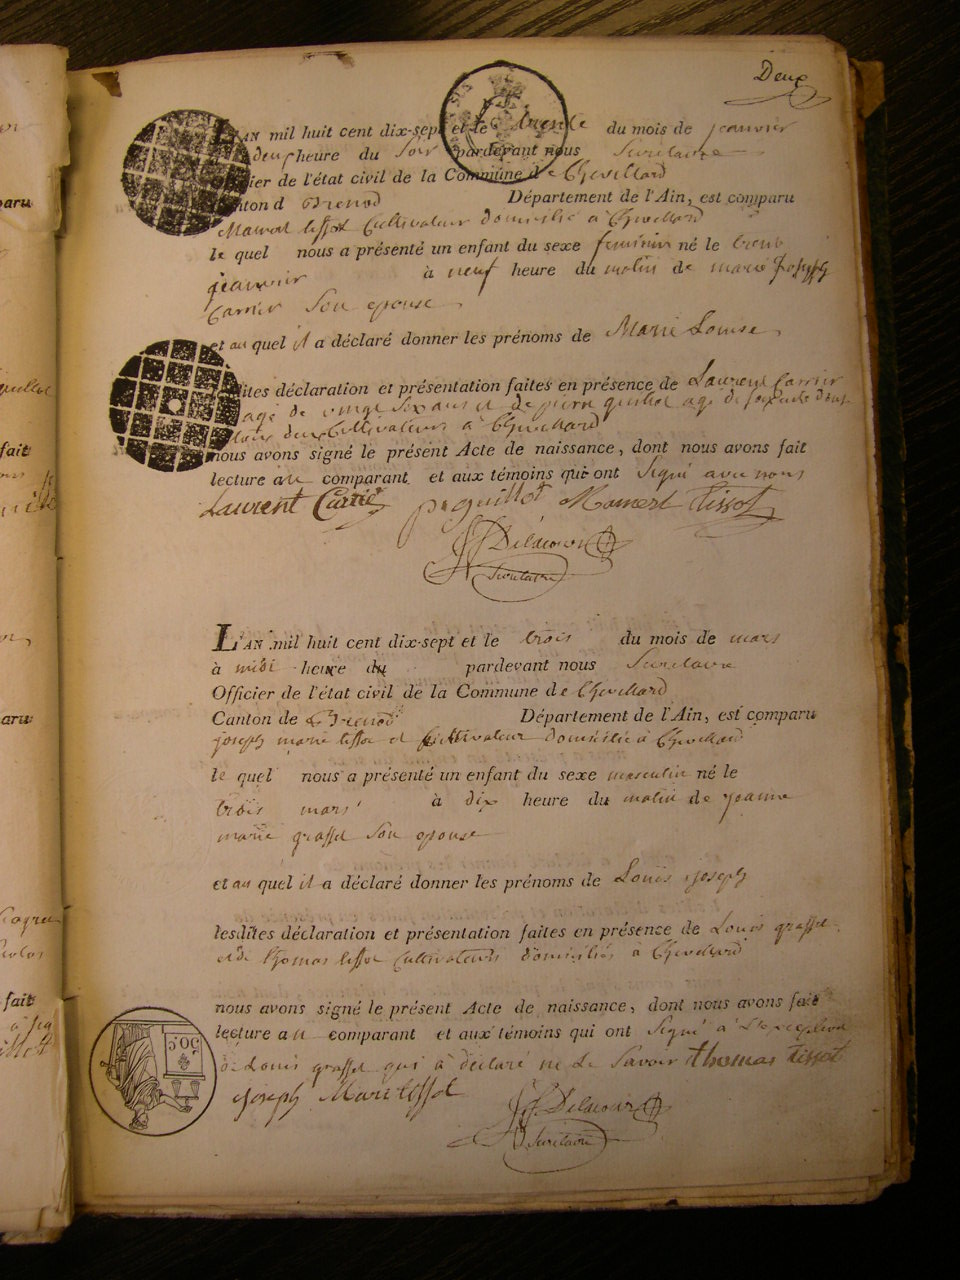 Deux
L'AN mil huit cent dix-sept et le trente du mois de jeanvier
deux heure du soir pardevant nous Secretaire
ier de l'état civil de la Commune de Chevillard
nton d Brenod Département de l'Ain, est comparu
Mamert tissot Cultivateur domicilié à Chevillard
le quel nous a présenté un enfant du sexe feminin né le trente
jeanvier à neuf heure du matin de marie Joseph
Carrier Son epouse
et au quel il a déclaré donner les prénoms de Marie Louise
dites déclaration et présentation faites en présence de Laurent Carrier
agé de vingt Six ans et de pierre guillot agé de
deux Cultivateurs à Chevillard
nous avons signé le présent Acte de naissance, dont nous avons fait
lecture au comparant et aux témoins qui ont Signé avec nous
Laurent Carrier p guillot Mamert tissot
Delacour
Secretaire
L'AN mil huit cent dix-sept et le trois du mois de mars
à midi heure du pardevant nous Secretaire
Officier de l'état civil de la Commune de Chevillard
Canton de Brenod Département de l'Ain, est comparu
joseph marie tissot Cultivateur domicilié à Chevillard
le quel nous a présenté un enfant du sexe masculin né le
trois mars à dix heure du matin de jeanne
marie grasset Son epouse
et au quel il a déclaré donner les prénoms de Louis joseph
lesdites déclaration et présentation faites en présence de Louis grasset
et de thomas tissot Cultivateurs domiciliés à Chevillard
nous avons signé le présent Acte de naissance, dont nous avons fait
lecture au comparant et aux témoins qui ont Signé à L'exception
de Louis grasset qui à déclaré ne le Savoir thomas tissot
joseph Marie tissot
Delacour
Secretaire
50 C.